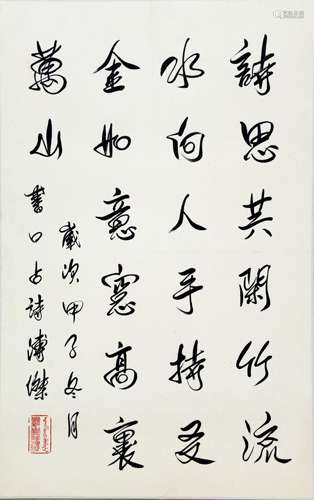 詩思共闌竹流
水向人手持
金如意窓高裏
萬山
歲次甲子冬月
書口占詩溥傑